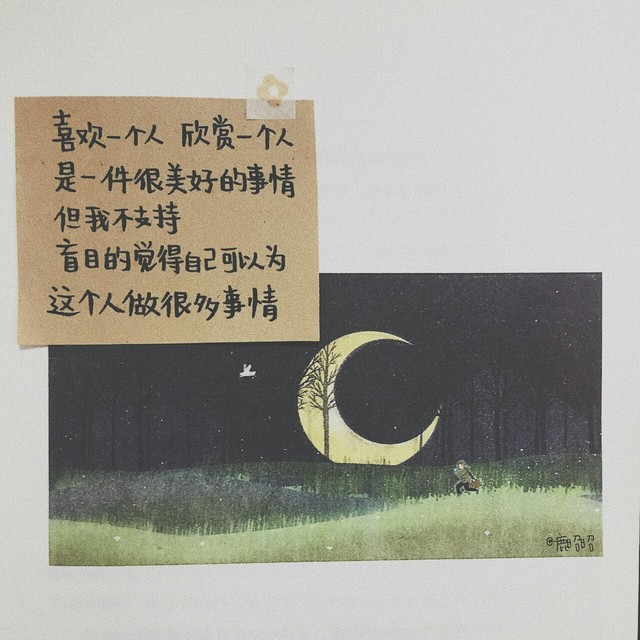 喜欢一个人 欣赏一个人
是一件很美好的事情
但我不支持
盲目的觉得自己可以为
这个人做很多事情
@鹿昭昭